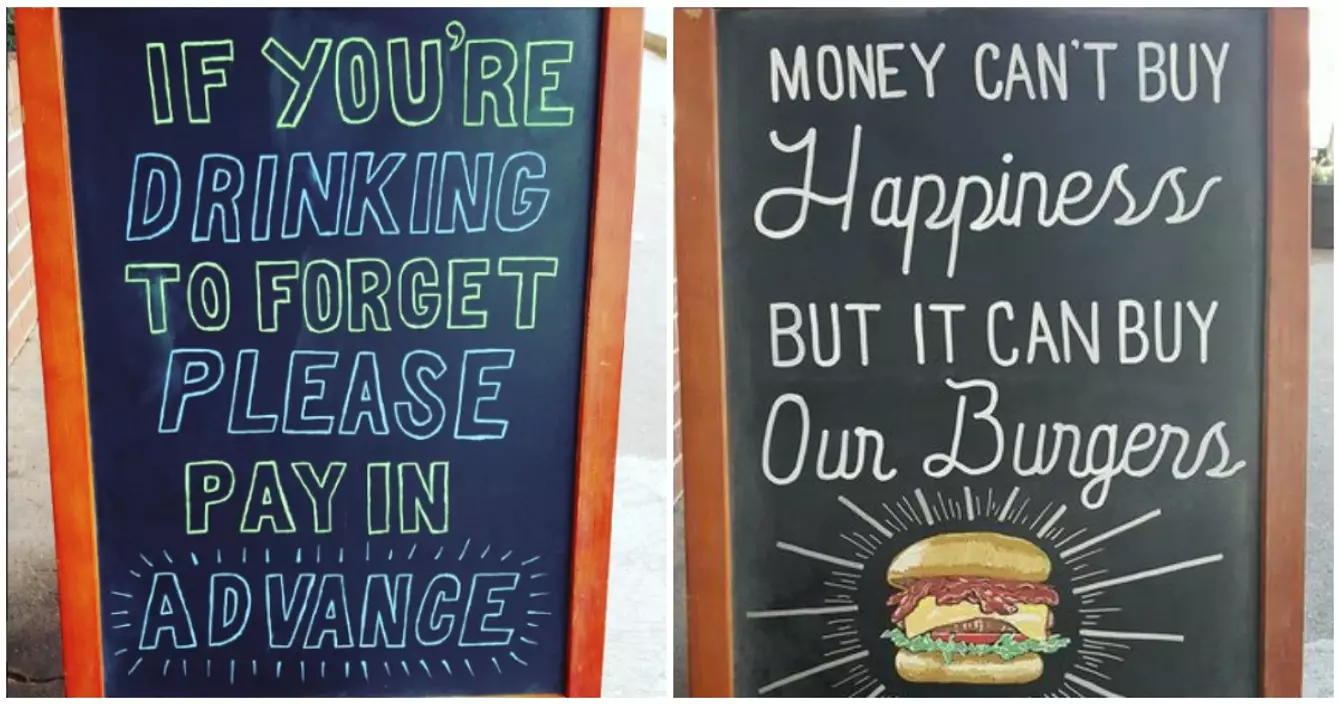 IF YOU'RE
DRINKING
TO FORGET
PLEASE
PAY IN
ADVANCE
MONEY CAN'T BUY
Happiness
BUT IT CAN BUY
Our Burgers